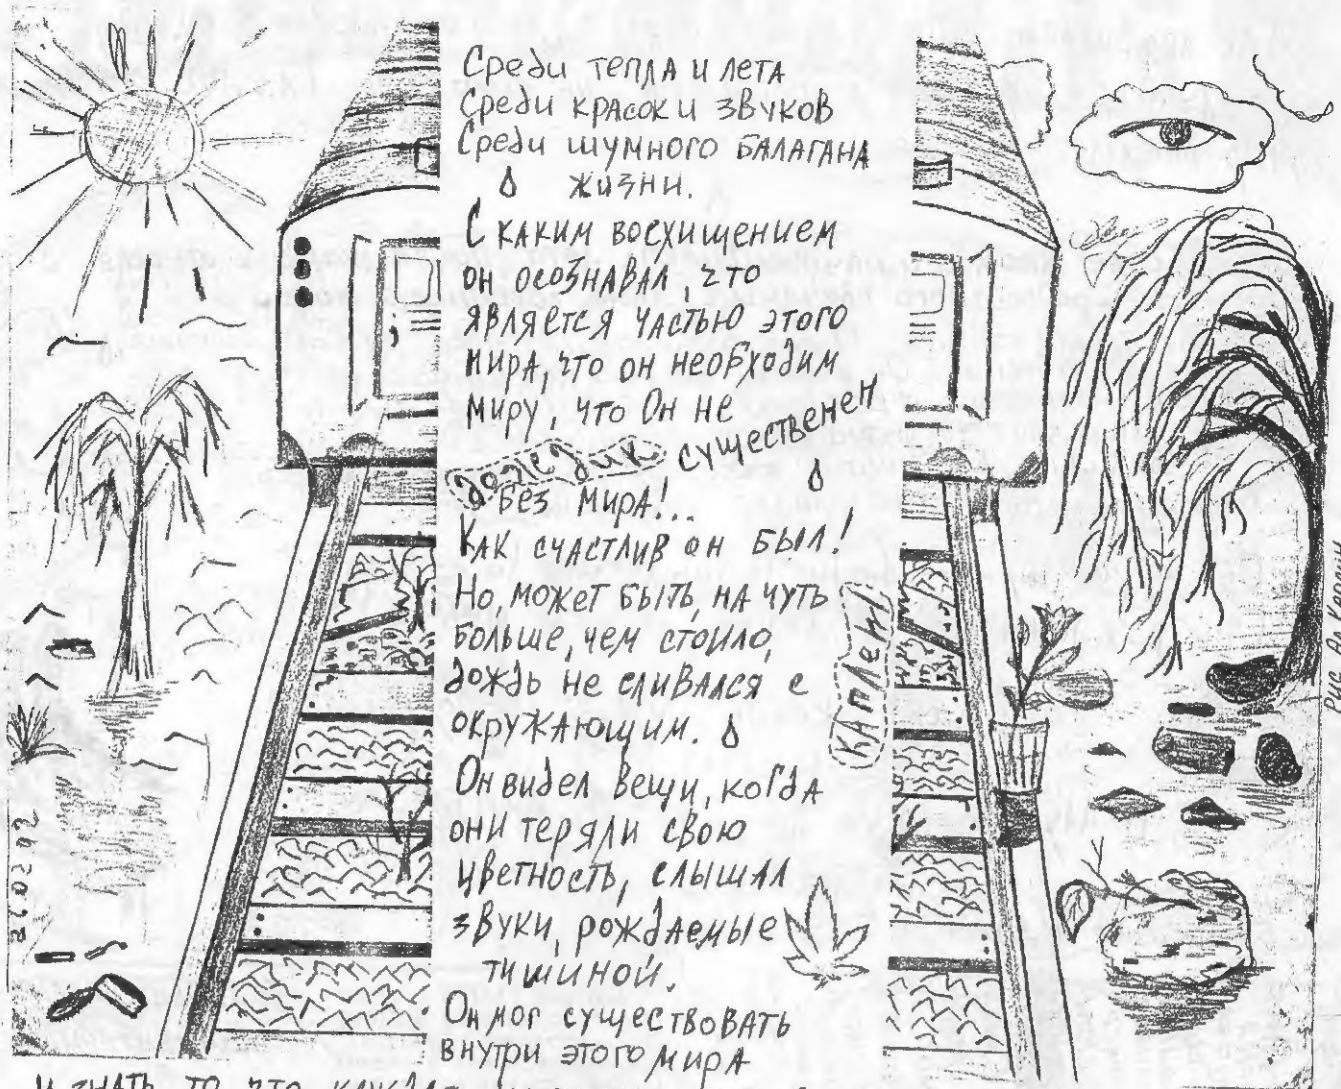 Среди тепла и лета
Среди красок и звуков
Среди шумного балагана
жизни.
С каким восхищением
он осознавал, что
является частью этого
мира, что он необходим
миру, что Он не
существенен
дождик
без мира!..
Как счастлив он был!
Но, может быть, на чуть
больше, чем стоило,
дождь не сливался с
окружающим.
Каплен
Он видел вещи, когда
они теряли свою
цветность, слышал
звуки, рождаемые
тишиной.
Он мог существовать
внутри этого мира
и знать то, что
26 02 92
Рис. А.